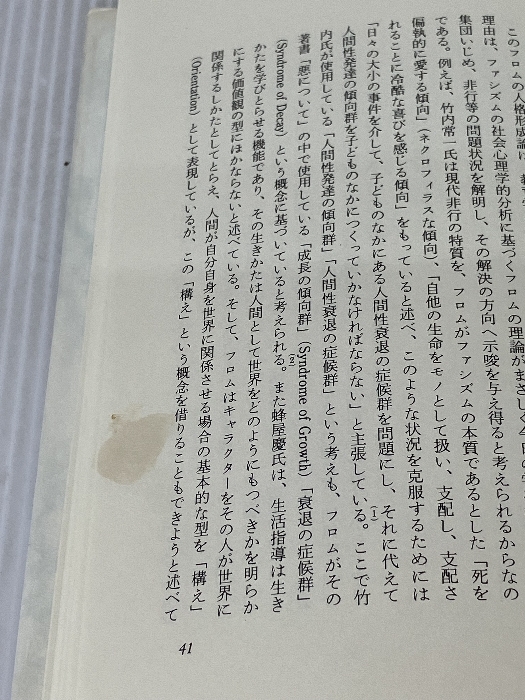 このフロムの人格形成論は、教育
理由は、ファシズムの社会心理学的分析に基づくフロムの理論がまさしく今日の
集団いじめ、非行等の問題状況を解明し、その解決の方向へ示唆を与え得ると考えられるからなの
である。例えば、竹内常一氏は現代非行の特質を、フロムがファシズムの本質であるとした「死を
偏執的に愛する傾向」(ネクロフィラスな傾向)、「自他の生命をモノとして扱い、支配し、支配さ
れることに冷酷な喜びを感じる傾向」をもっていると述べ、このような状況を克服するためには
「日々の大小の事件を介して、子どものなかにある人間性衰退の症候群を問題にし、それに代えて
人間性発達の傾向群を子どものなかにつくっていかなければならない」と主張している。(1)ここで竹
内氏が使用している「人間性発達の傾向群」「人間性衰退の症候群」という考えも、フロムがその
著書「悪について」の中で使用している「成長の傾向群」(Syndrome of Growth)「衰退の症候群」
(Syndrome of Decay)という概念に基づいていると考えられる。(2)また蜂屋慶氏は、生活指導は生き
かたを学びとらせる機能であり、その生きかたは人間として世界をどのようにもつべきかを明らか
にする価値観の型にほかならないと述べている。そして、フロムはキャラクターをその人が世界に
関係するしかたとしてとらえ、人間が自分自身を世界に関係させる場合の基本的な型を「構え」
(Orientation)として表現しているが、この「構え」という概念を借りることもできようと述べて
41